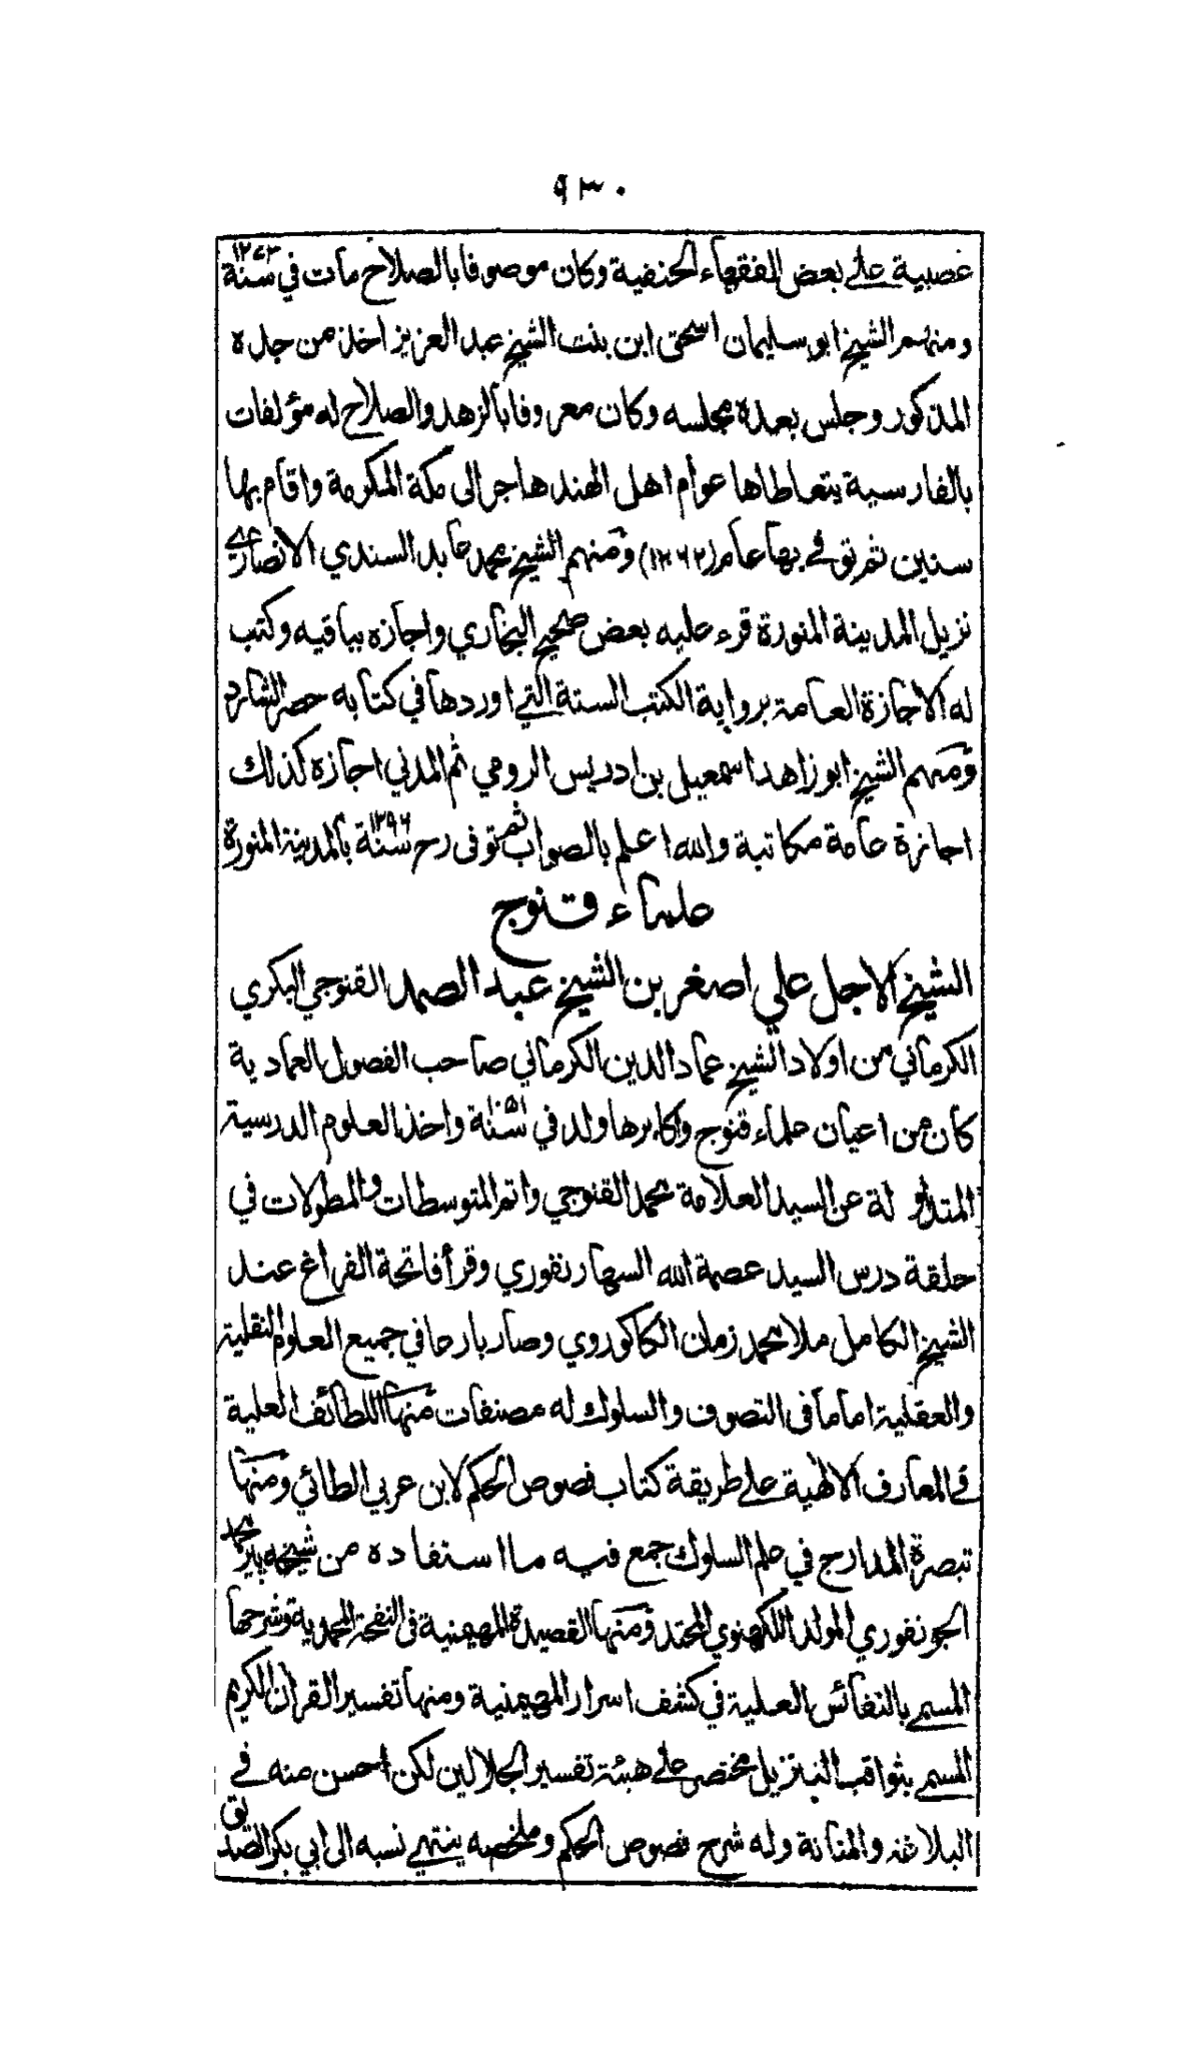 ٩٣٠
عصبية على بعض الفقهاء الحنفية وكان موصوفا بالصلاح مات في سنة ١٢٧٣
ومنهم الشيخ ابو سليمان اسحق ابن بنت الشيخ عبد العزيز اخذ من جده
المذكور وجلس بعده مجلسه وكان معروفا بالزهد والصلاح له مؤلفات
بالفارسية يتعاطاها عوام اهل الهند هاجر الى مكة المكرمة واقام بها
سنين ثم توفي بها عام (١٢٦٢) ومنهم الشيخ محمد عابد السندي الانصاري
نزيل المدينة المنورة قرء عليه بعض صحيح البخاري واجازه بباقيه وكتب
له الاجازة العامة برواية الكتب الستة التي اوردها في كتابه حصر الشارد
ومنهم الشيخ ابو زاهد اسمعيل بن ادريس الرومي ثم المدني اجازه كذلك
اجازة عامة مكاتبة والله اعلم بالصواب ثم توفى رح سنة ١٢٩٦ بالمدينة المنورة
علماء قنوج
الشيخ الاجل علي اصغر بن الشيخ عبد الصمد القنوجي البكري
الكرماني من اولاد الشيخ عماد الدين الكرماني صاحب الفصول العمادية
كان من اعيان علماء قنوج واكابرها ولد في سنة ١٠٥١ واخذ العلوم الدرسية
المتداولة عن السيد العلامة محمد القنوجي واتم المتوسطات والمطولات في
حلقة درس السيد عصمة الله السهارنفوري وقرأ فاتحة الفراغ عند
الشيخ الكامل ملا محمد زمان الكاكوروي وصار بارعا في جميع العلوم النقلية
والعقلية اماما فى التصوف والسلوك له مصنفات منها اللطائف العلية
في المعارف الالهية على طريقة كتاب فصوص الحكم لابن عربي الطائي ومنها
تبصرة المدارج في علم السلوك جمع فيه ما استفاده من شيخه پير محمد
الجونفوري المولد اللكهنوي المحتد ومنها القصيدة المهيمنية فى النفحة المحمدية وشرحها
المسمى بالنفائس العلية في كشف اسرار المهيمنية ومنها تفسير القران الكريم
المسمى بثواقب التنزيل مختصر على هيئة تفسير الجلالين لكن احسن منه في
البلاغة والمتانة وله شرح فصوص الحكم وملخصه ينتهي نسبه الى ابي بكر الصديق